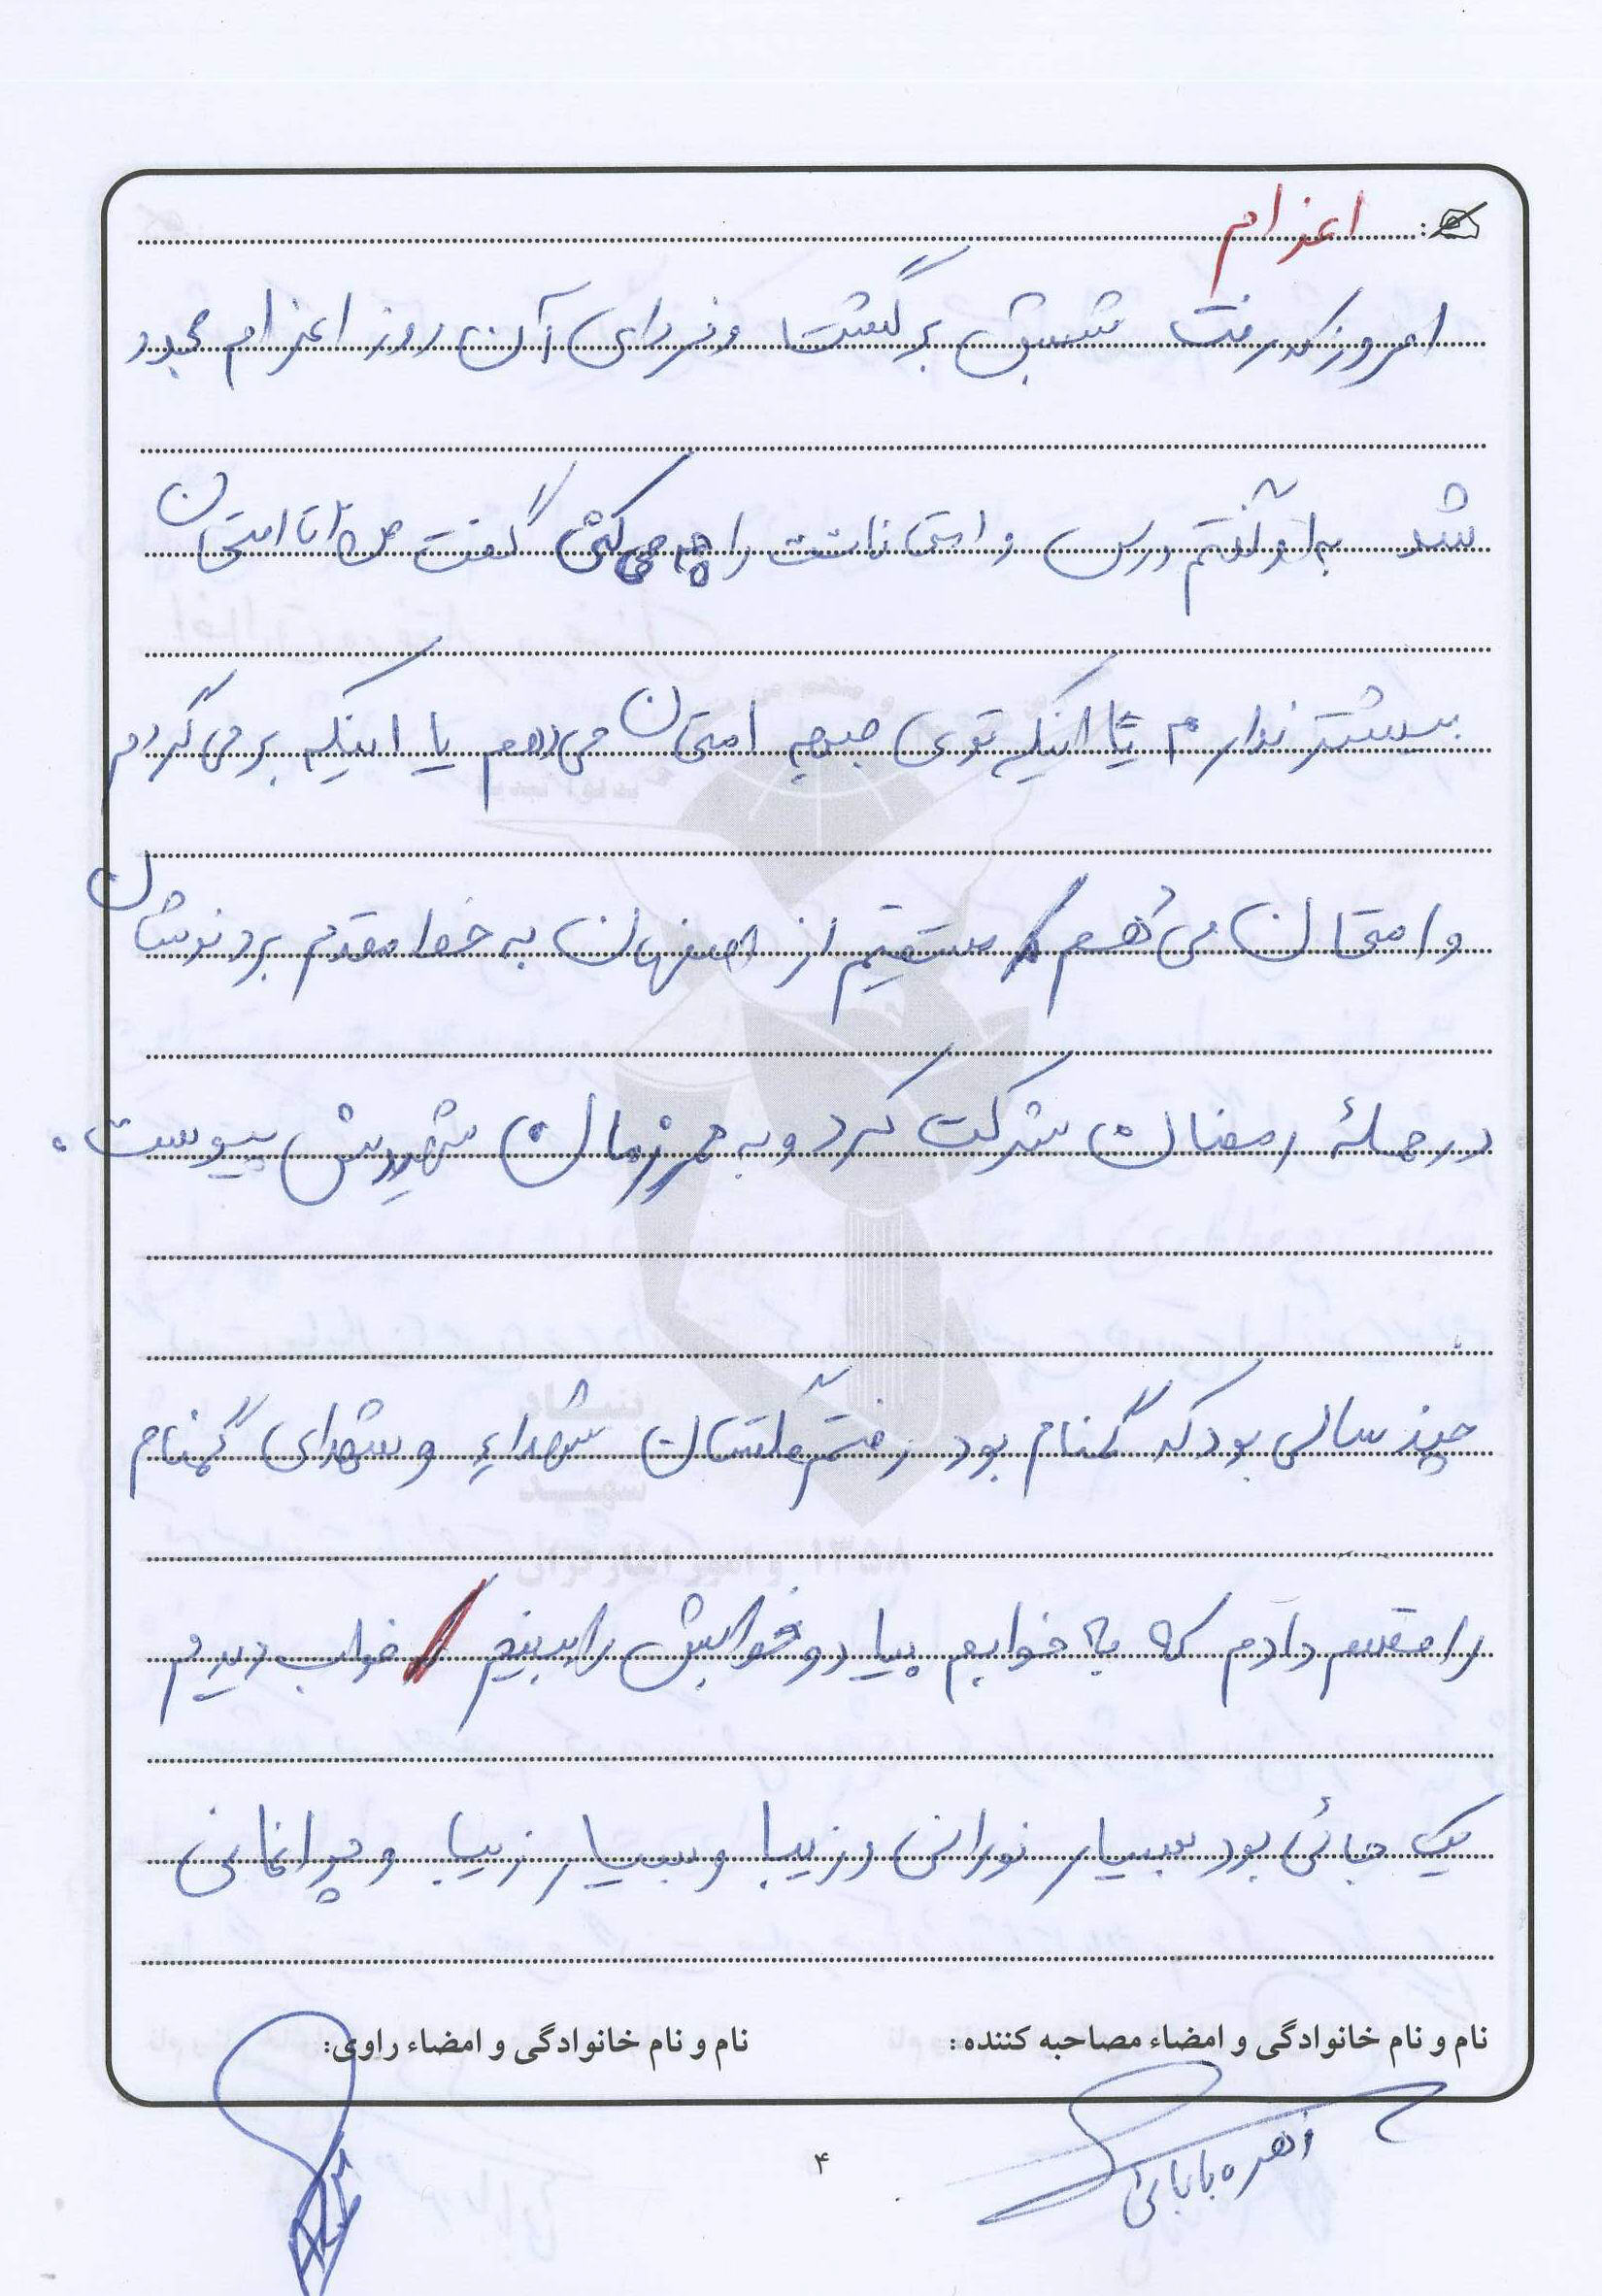 اعزام
امروز که رفت شبش برگشت و فردای آن روز اعزام مجدد
شد به او گفتم درس و امتحاناتت را چه می‌کنی گفت من ۲ تا امتحان
بیشتر ندارم یا اینکه توی جبهه امتحان می‌دهم یا اینکه بر می‌گردم
و امتحان می‌دهم مستقیم از اصفهان به خط مقدم بردنوشان
در حملهٔ رمضان شرکت کرد و به همرزمان شهیدش پیوست.
چند سالی بود که گمنام بود رفتم گلستان شهداء و شهدای گمنام
را قسم دادم که به خوابم بیاد و خوابش را ببینم خواب دیدم
یک جائی بود بسیار نورانی و زیبا و بسیار زیبا و چراغانی
نام و نام خانوادگی و امضاء مصاحبه کننده: نام و نام خانوادگی و امضاء راوی:
زهره بابائی
۴